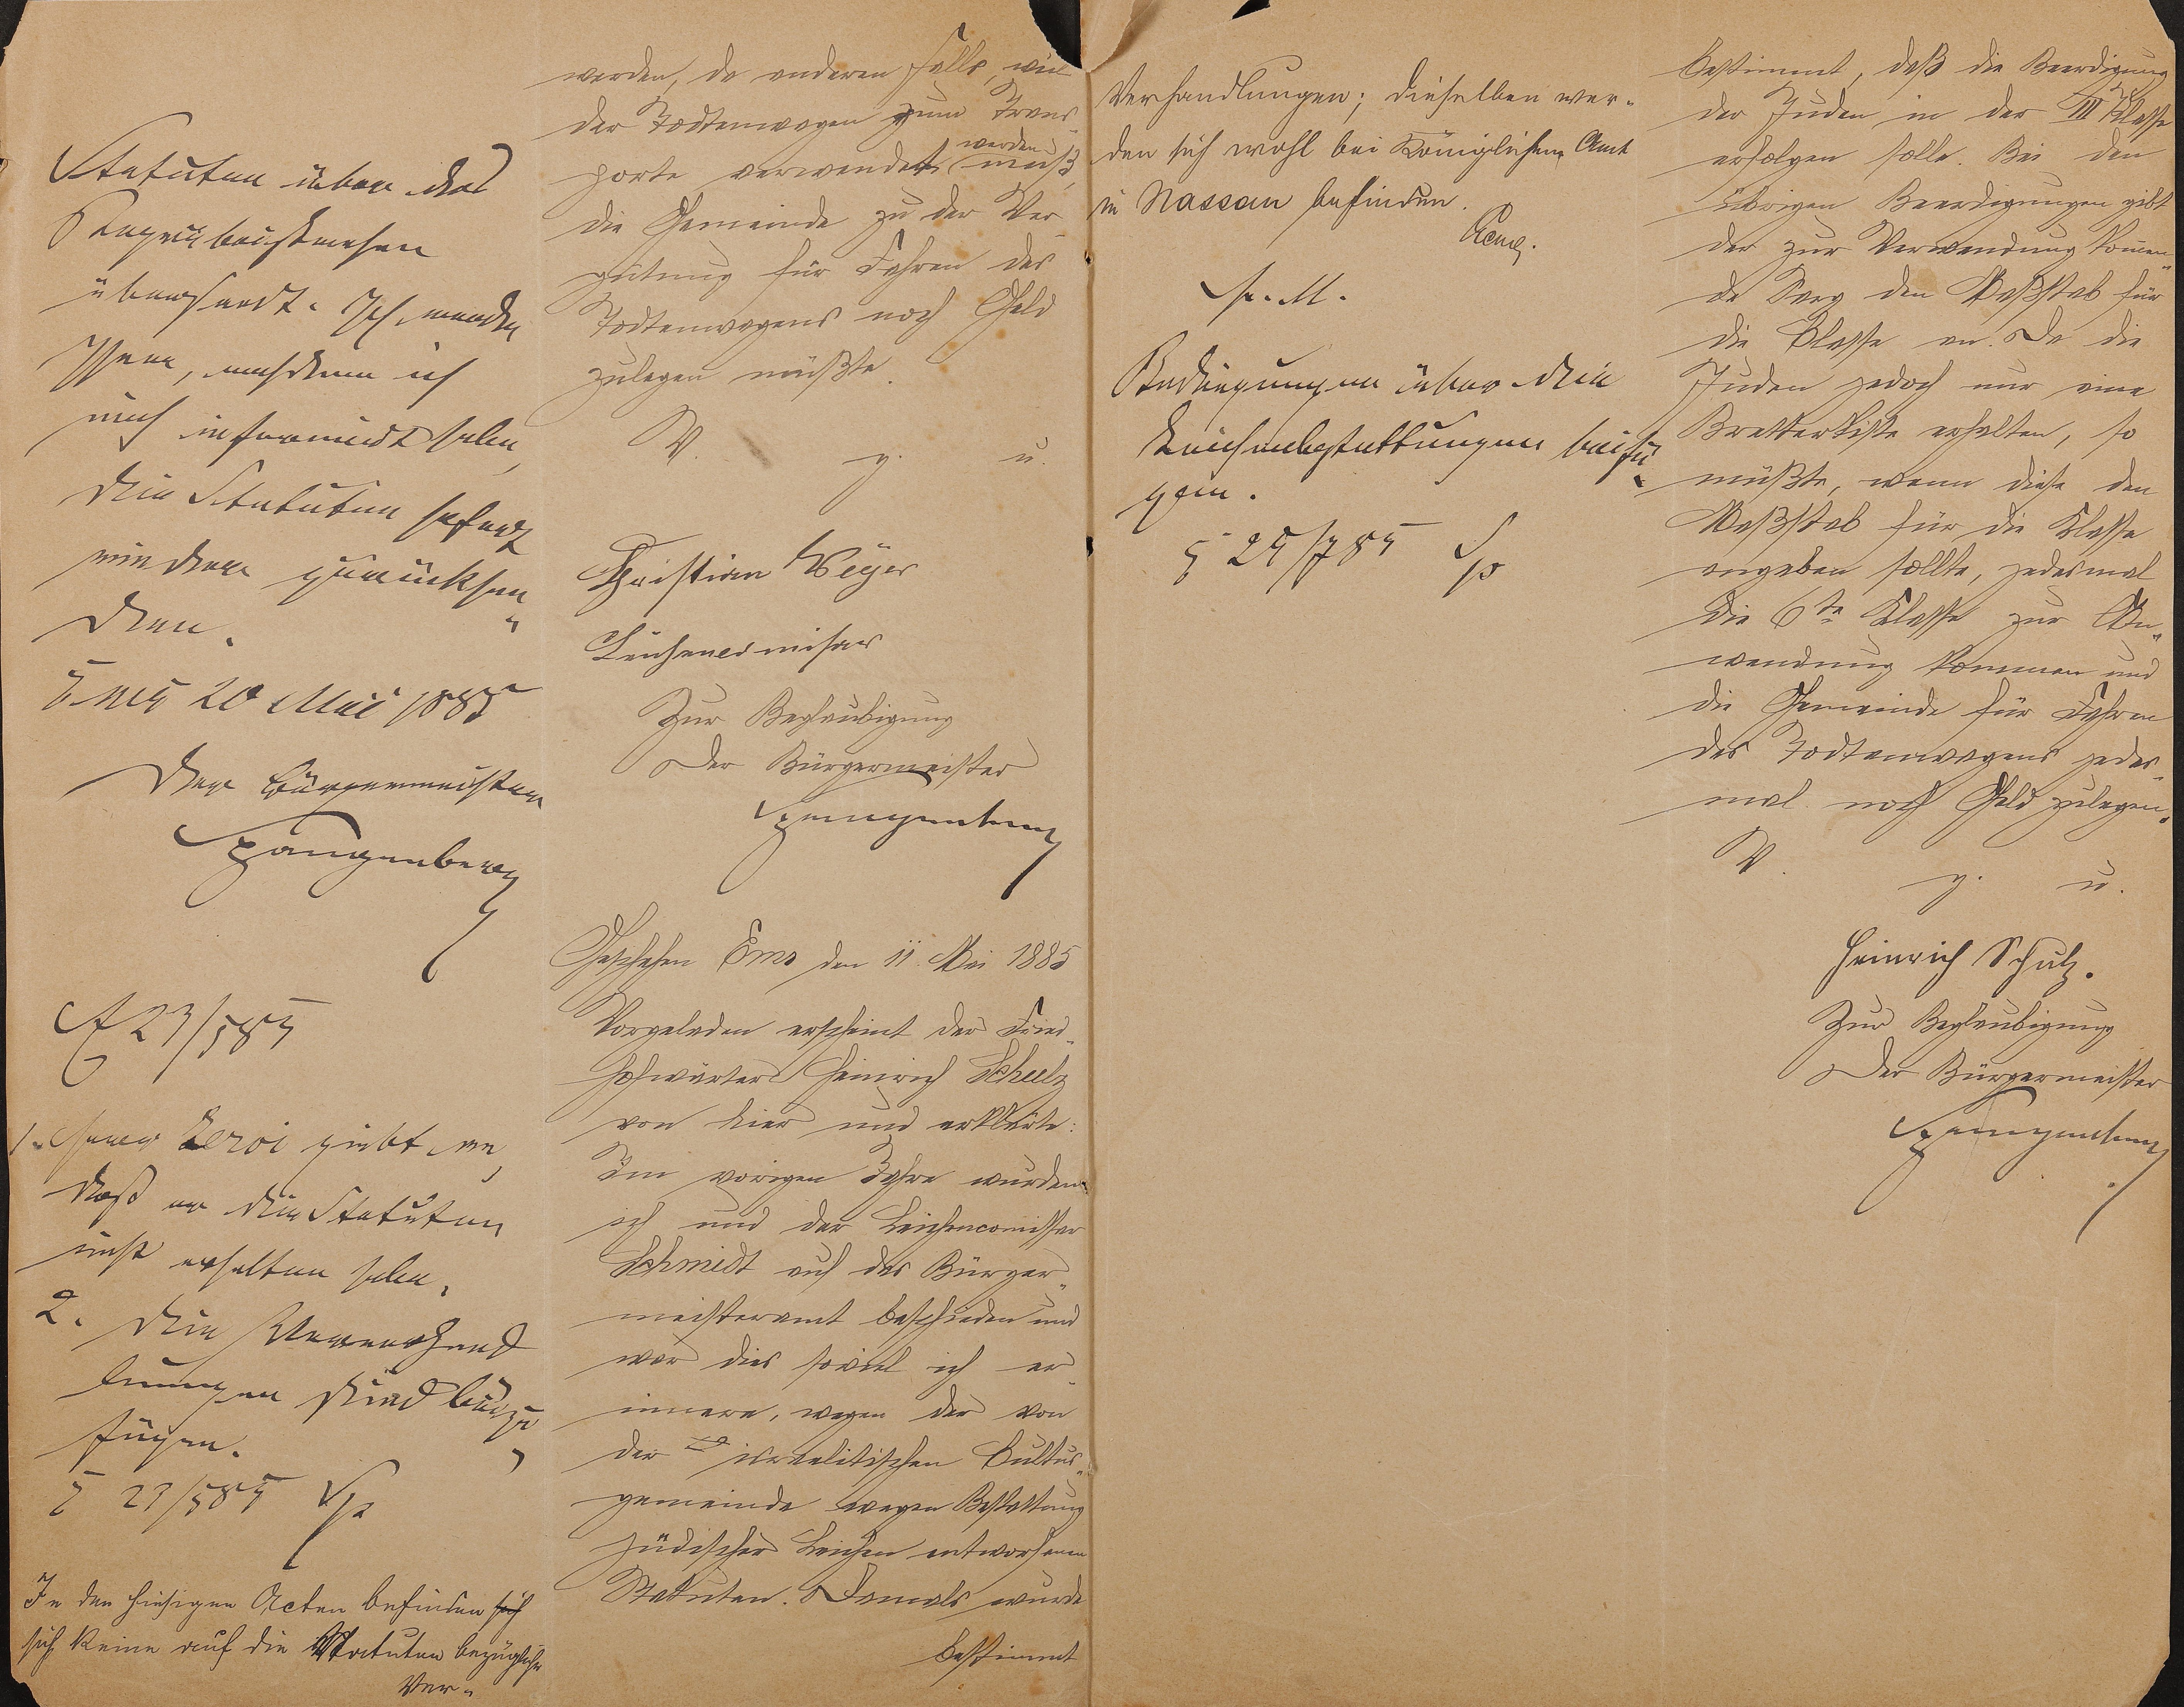 Statuten über das
Begräbnißwesen
übersandt. Ich werde
Ihnen, nachdem ich
mich informirt habe,
die Statuten sofort
wieder zurücksen-
den.
Ems 20 Mai 1885
Der Bürgermeister
Spangenberg
23/5 85
1. Herr Leroi giebt an,
daß er die Statuten
nicht erhalten habe.
2. Die
sind beizu-
fügen.
E 23/5 85 Sp
In den hiesigen Acten befinden sich
sich keine auf die Statuten bezügliche
Ver-
werden, da anderen Falls, weil
der Todtenwagen zum Trans-
porte verwendet werden muß,
die Gemeinde zu der Ver-
gütung für Fahren des
Todtenwagens noch Geld
zulegen müßte.
V. g. u.
Christian Weyer
Leichencomisar
Zur Beglaubigung
Der Bürgermeister
Spangenberg
Geschehen Ems den 11. Mai 1885
Vorgeladen erscheint der Fried-
hofwärter Heinrich Schulz
von hier und erklärte:
Im vorigen Jahre wurden
ich und der Leichencomissar
Schmidt auf das Bürger-
meisteramt beschieden und
war dies soviel ich er-
innere, wegen der von
der israelitischen Cultus-
gemeinde wegen Bestattung
jüdischer Leichen entworfenen
Statuten. Damals wurde
bestimmt
Verhandlungen; dieselben wer-
den sich wohl bei Königlichem Amt
in Nassau befinden.
s. M.
Bedingungen über die
Leichenbestattungen beifü-
gen.
E 24/7 85 Sp
bestimmt, daß die Beerdigung
der Juden in der III Klasse
erfolgen solle. Bei den
übrigen Beerdigungen gibt
der zur Verwendung kommen-
de Sarg den Maßstab für
die Klasse an. Da die
Juden jedoch nur eine
Bretterkiste erhalten, so
müßte, wenn diese den
Maßstab für die Klasse
angeben sollte, jedesmal
die 6te Klasse zur An-
wendung kommen und
die Gemeinde für Fahren
des Todtenwagens jedes-
mal noch Geld zulegen.
V. g. u.
Heinrich Schulz.
Zur Beglaubigung
Der Bürgermeister
Spangenberg